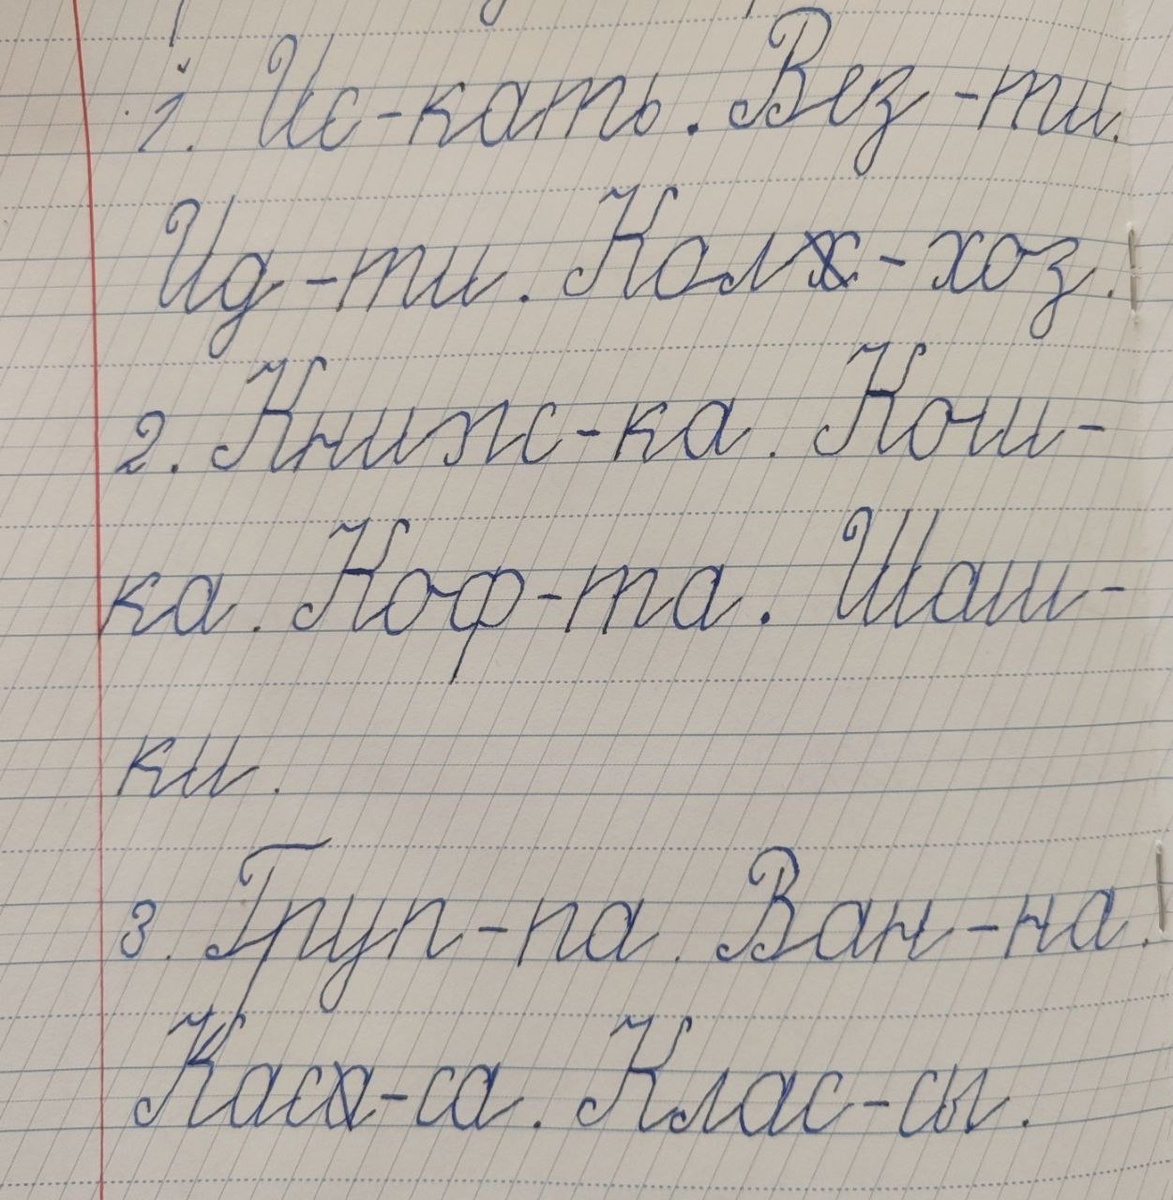 1. Ис-кать. Вез-ти.
Ид-ти. Колх-хоз.
2. Книж-ка. Кош-
ка. Коф-та. Шаш-
ки.
3. Груп-па. Ван-на.
Каса-са. Клас-сы.